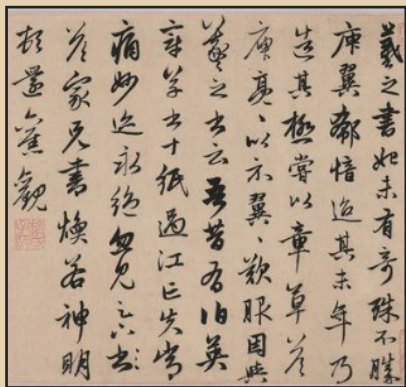 羲之書始未有奇殊不勝
庾翼郗愔迨其末年乃
造其極嘗以章草答
庾亮亮以示翼翼歎服因與
羲之書云吾昔有伯英
章草書十紙過江亡失常
痛妙迹永絕忽見足下書
答家兄書煥若神明
頓還舊觀